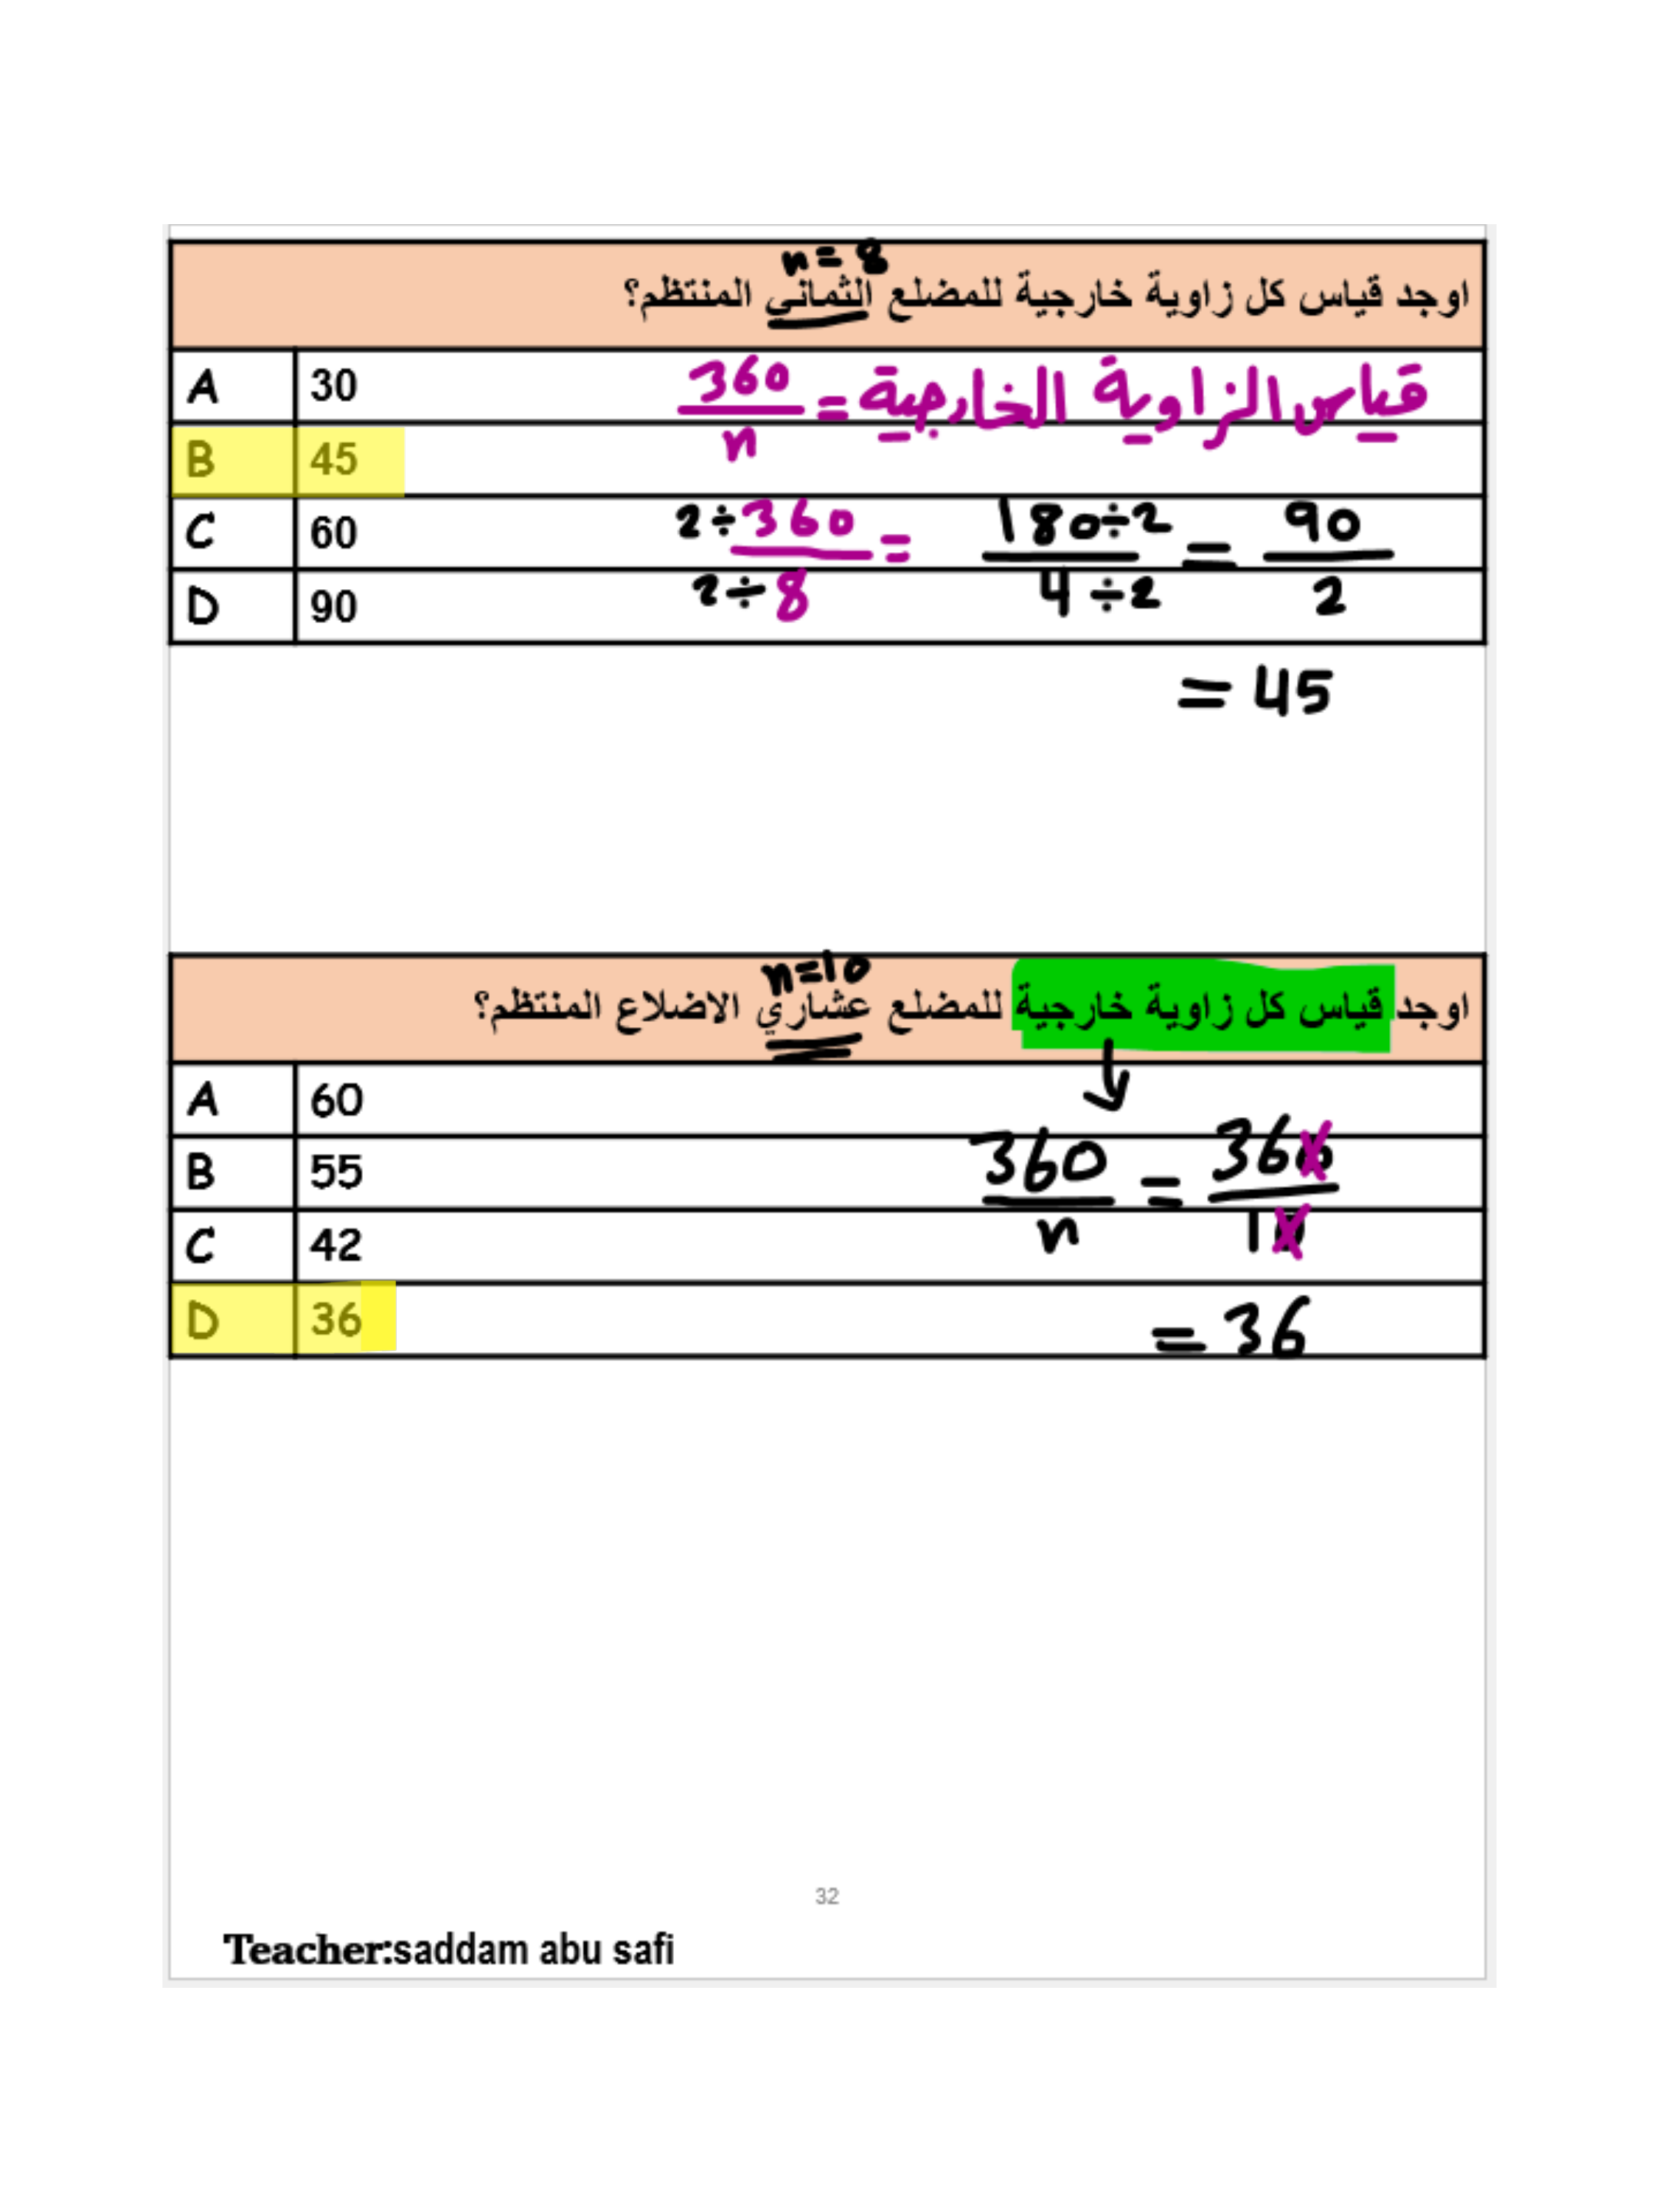 n=8
اوجد قياس كل زاوية خارجية للمضلع الثماني المنتظم؟
A 30
قياس الزاوية الخارجية = 360/n
B 45
C 60
D 90
2÷360/2÷8 = 180÷2/4÷2 = 90/2
= 45
n=10
اوجد قياس كل زاوية خارجية للمضلع عشاري الاضلاع المنتظم؟
A 60
B 55
360/n = 360/10
C 42
D 36
= 36
32
Teacher:saddam abu safi